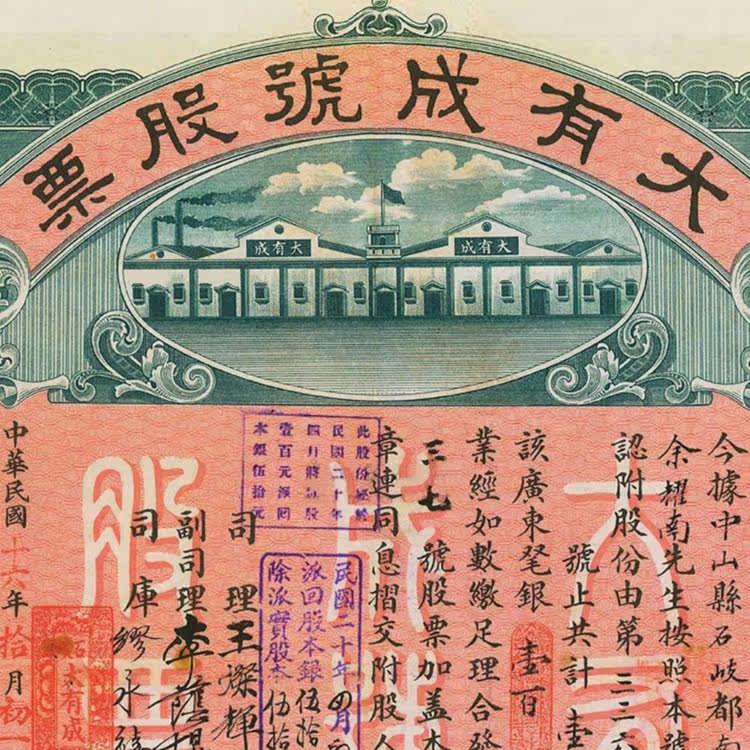 大有成號股票
大有成
大有成
今據中山縣石岐都
余耀南先生按照本號
認附股份由第三三
號止共計壹
該廣東毫銀壹百
業經如數繳足理合發
三七號股票加盖本
章連同息摺交附股人
此股份經於
民國二十年
四月將
壹百元派囘
本銀伍拾元
民國二十年四月
派回股本銀伍拾
除派實股本伍拾
司理王燦輝
副司理李蔭
司庫繆永
中華民國十六年拾月初一
大有成